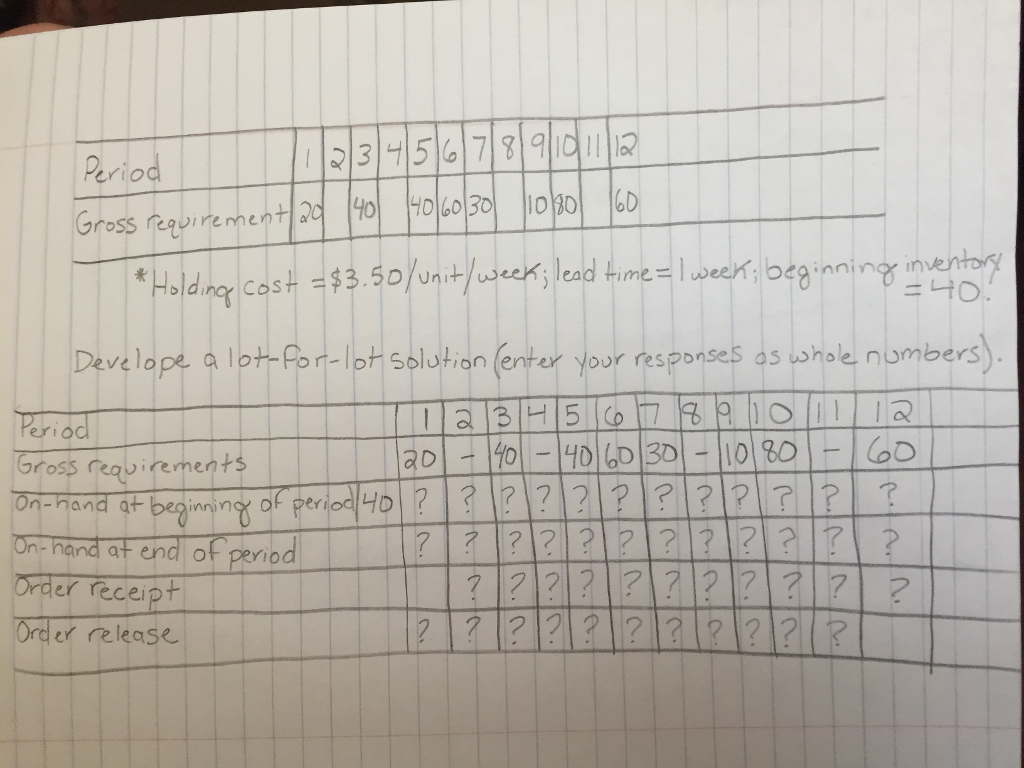 Period 1 2 3 4 5 6 7 8 9 10 11 12
Gross requirement 20 40 40 60 30 10 80 60
*Holding cost = $3.50/unit/week; lead time = 1 week; beginning inventory = 40.
Develope a lot-for-lot solution (enter your responses as whole numbers).
Period 1 2 3 4 5 6 7 8 9 10 11 12
Gross requirements 20 - 40 - 40 60 30 - 10 80 - 60
On-hand at beginning of period 40 ? ? ? ? ? ? ? ? ? ? ? ?
On-hand at end of period ? ? ? ? ? ? ? ? ? ? ? ?
Order receipt ? ? ? ? ? ? ? ? ? ? ?
Order release ? ? ? ? ? ? ? ? ? ? ?